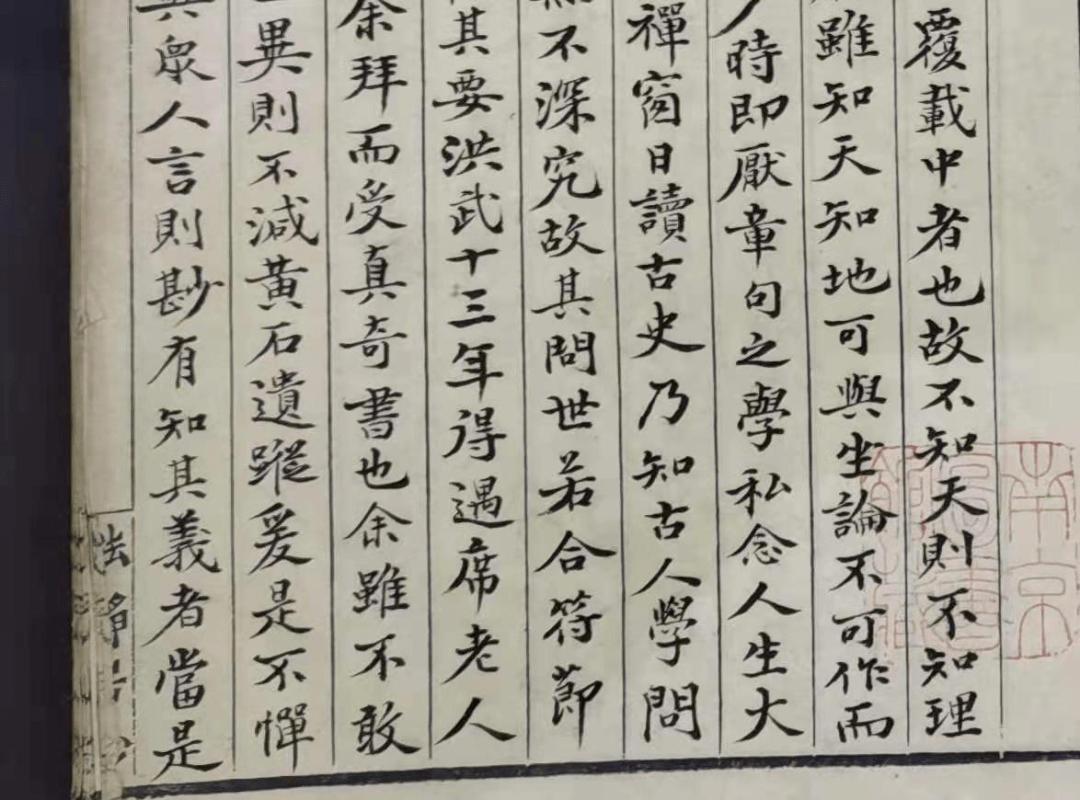 覆載中者也故不知天則不知理
雖知天知地可與坐論不可作而
時即厭章句之學私念人生大
禪窗日讀古史乃知古人學問
不深究故其問世若合符節
其要洪武十三年得遇席老人
余拜而受真奇書也余雖不敢
異則不減黃石遺蹤爰是不憚
與眾人言則尠有知其義者當是
南京